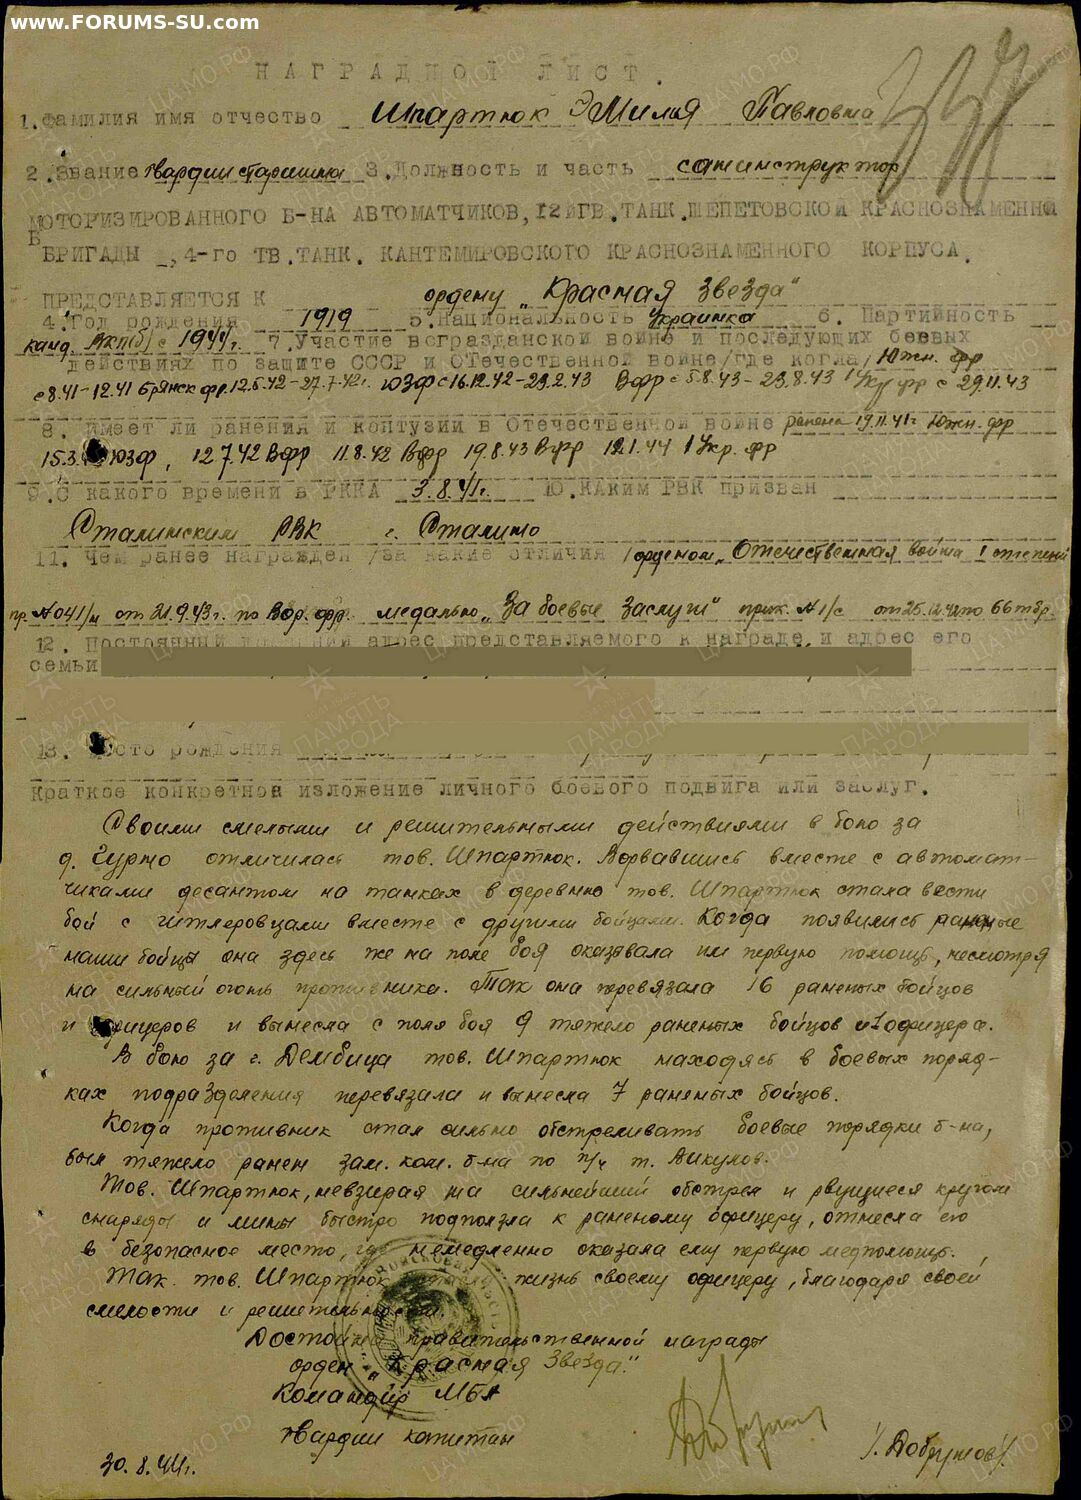 www.FORUMS-SU.com
НАГРАДНОЙ ЛИСТ.
1. Фамилия имя отчество Шпартюк Эмилья Павловна
2. Звание гвардии старшина 3. Должность и часть санинструктор
МОТОРИЗИРОВАННОГО Б-НА АВТОМАТЧИКОВ, 12 ГВ. ТАНК. ШЕПЕТОВСКОЙ КРАСНОЗНАМЕННО
Й
БРИГАДЫ, 4-го ГВ. ТАНК. КАНТЕМИРОВСКОГО КРАСНОЗНАМЕННОГО КОРПУСА.
ПРЕДСТАВЛЯЕТСЯ К ордену „Красная Звезда"
4. Год рождения 1919 5. Национальность Украинка 6. Партийность
канд. ВКП(б) с 1944г. 7. Участие вогразданской войне и последующих боевых
действиях по защите СССР и Отечественной войне/где когда/ Южн. фр
с 8.41-12.41 Брянск фр. 12.5.42-27.7.42г. ЮЗФ с 16.12.42-23.2.43 В фр с 5.8.43-23.8.43 1 Укр фр с 29.11.43
8. Имеет ли ранения и контузии в Отечественной войне ранена 19.11.41г Южн. фр
15.3. ЮЗФ, 12.7.42 В фр 11.8.42 В фр 19.8.43 В фр 1 Укр. фр
9. С какого времени в РККА 3.8.41г. 10. Каким РВК призван
Сталинским РВК г. Сталино
11. Чем ранее награжден /за какие отличия /орденом „Отечественная война I степени
пр. № 041/н от 21.9.43г. по Вор. фр. медалью „За боевые заслуги" прик. № 1/с от 25.12.42 по 66 тбр.
12. Постоянный адрес представляемого к награде и адрес его
семьи
13. Место рождения
Краткое конкретное изложение личного боевого подвига или заслуг.
Своими смелыми и решительными действиями в бою за
д. Гурно отличилась тов. Шпартюк. Ворвавшись вместе с автомат-
чиками десантом на танках в деревню тов. Шпартюк стала вести
бой с гитлеровцами вместе с другими бойцами. Когда появились раненые
наши бойцы она здесь же на поле боя оказывала им первую помощь, несмотря
на сильный огонь противника. Так она перевязала 16 раненых бойцов
и офицеров и вынесла с поля боя 9 тяжело раненых бойцов и 1 офицера.
В бою за г. Дембица тов. Шпартюк находясь в боевых поряд-
ках подразделения перевязала и вынесла 7 раненых бойцов.
Когда противник стал сильно обстреливать боевые порядки б-на,
был тяжело ранен зам. ком. б-на по п/ч т. Викулов.
Тов. Шпартюк, невзирая на сильнейший обстрел и рвущиеся кругом
снаряды и мины быстро подползла к раненому офицеру, отнесла его
в безопасное место, где немедленно оказала ему первую медпомощь.
Так тов. Шпартюк жизнь своему офицеру, благодаря своей
смелости и решительности.
Достойна правительственной награды
орден „Красная Звезда."
Командир МБА
гвардии капитан /. Добрунов/.
30.8.44г.